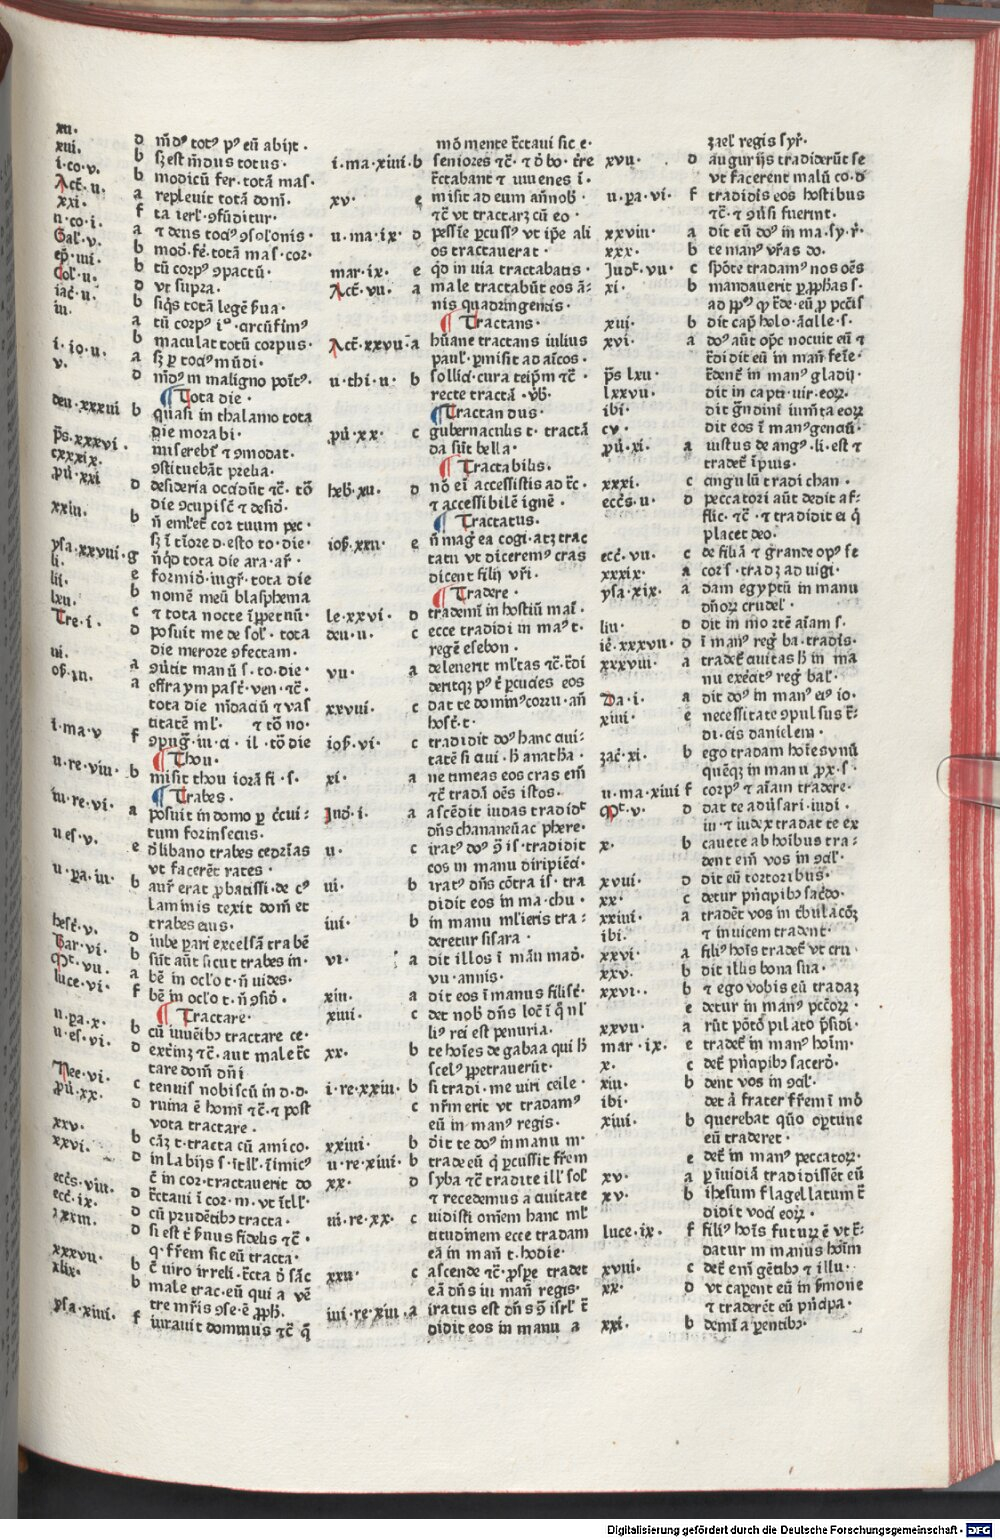 xii. d m̄dꝰ totꝰ pꝰ eū abijt.
xiii. b sȝ est m̄dus totus.
i.co.v. b modicū fer. totā mas.
Act̄.v. a repleuit totā dom̄.
xxi. f ta ierl̄ ꝯfūditur.
ii.co.i. a ⁊ deus tociꝰ ꝯsol'onis.
Gal'.v. b mod̄.fē.totā mas.cor.
ep̄.iiii. b tū corpꝰ ꝯpactū.
Col'.ii. d vt supra.
iac̄.ii. b siq̄s totā legē
iii. a tū corpꝰ
b maculat totū corpus.
i.io.ii. a sȝ ꝑ tociꝰ mūdi.
v. d m̄dꝰ in maligno poīt
¶ Tota die.
deu.xxxiii b quasi in thalamo tota
die morabi.
p̄s.xxxvi. miserebit̄ ⁊ ꝯmodat.
cxxxix. ꝯstituebāt prelia.
ꝓu.xxi d desideria occidūt ⁊c̄. tō
die ꝯcupisc̄ ⁊ desid̄.
xxiii. b cor tuum pec.
sȝ ī tīore d.esto to.die.
ysa.xxviii.g nūqd tota die ara.ar̄.
li. e formid̄.iugr̄.tota die
lii. b nomē meū blasphema
lxii. c ⁊ tota nocte īꝑpetnū.
Tre.i. d posuit me de sol'. tota
die merore ꝯfectam.
iii. a ꝯūtit manū s.to.die.
a effraym pasc̄.ven.⁊c̄.
tota die m̄daciū ⁊ vas
titatē ml̄. ⁊ tō no.
i.ma.v f ꝯpuḡ.iu.a.il.tō die
¶ Thou.
ii.re.viii. b misit thou iorā fi.s.
¶ Trabes.
iii.re.vi. a posuit in domo ꝑ c̄cui
tum forinsecus.
ii es.v. e d̄ libano trabes cedrīas
vt facerēt rates.
ii.pa.iii. b aur̄ erat ꝓbatissi.de cꝰ
laminis texit dom̄ et
trabes eius.
hest̄.v. d iube ꝑari excelsā trabē
Bar.vi. b sūt aūt sicut trabes in.
Mt̄.vii. a bē in oc'lo t.n̄ uides.
luce.vi. f bē in oc'lo t.n̄ ꝯsid̄.
¶ Tractare.
ii.pa.x. b cū iuuēibꝰ tractare ce.
ii.es.vi. d ext'inȝ ⁊c̄.aut male t̄c
tare dom̄ dn̄i
Nee.vi. c tenuis nobiscū in d.d.
ꝓu.xx. d ruina ē homī ⁊c̄.⁊ post
vota tractare.
xxv. b cāȝ t.tracta cū amico.
xxvi. d in labijs s.
c̄ in cor.tractauerit do
ecc̄s.viii. d t̄ctaui ī cor.m.vt
ecc̄.ix. d cū prudētibꝰ tracta.
xxxiii. d si est t̄ p̄nus fidelis ⁊c̄.
q.fr̄em sic eū tracta.
xxxvii. b c̄ uiro irreli.t̄cta d̄ sāc
xlix. b male trac.eū qui a vē
tre mr̄is ꝯse.ē ꝓph̄.
ysa.xiiii. f iurauit dominus ⁊c̄ q̄
mō mente t̄ctaui sic e.
i.ma.xiiii.b seniores ⁊c̄.⁊ d̄ bo.t̄re
t̄ctabant ⁊ iuuenes ī.
xv. e misit ad eum
⁊c̄ vt tractarȝ cū eo.
ii.ma.ix. d pessīe ꝑcussꝰ vt ip̄e ali
os tractauerat.
mar.ix. e qd in uia tractabatis.
Act̄.vii. a male tractabūt eos ā=
nis quadringentis.
¶ Tractans.
Act̄.xxvii.a hūane tractans iulius
paul'.ꝑmisit ad aīcos.
ii.thi.ii. b sollici.cura teip̄m ⁊c̄.
recte tractā.v̄b.
¶ Tractandus.
ꝓu.xx. c gubernaculis t. tractā
da sūt bella.
¶ Tractabilis.
heb.xii. d nō eī accessistis ad t̄c.
⁊ accessibilē ignē.
¶ Tractatus.
iob.xxii. e n̄ maḡ ea cogi.atȝ trac
tatu vt dicerem cras
dicent filij vr̄i.
¶ Tradere.
le.xxvi. d trademī in hostiū man̄.
deu.ii. c ecce tradidi in maꝰ t.
regē esebon.
vii. a delenerit ml'tas ⁊c̄.t̄di
deritqȝ pꝰ t̄ ꝑcucies eos
xxviii. c dat te dominꝰ corru.an̄
host̄.t.
iob.vi. c tradidit doꝰ hanc ciui.
tatē si qui.h̄ anatha.
xi. a ne timeas eos cras em̄
⁊c̄ tradā oēs istos.
Iud̄.i. a ascēdit iudas tradidꝰ
dn̄s chananeū ac phere.
ii. c iratꝰ doꝰ ꝯ̄ is̄.tradidit
eos in manu diripiēci.
iii. b iratꝰ dn̄s cōtra is̄.tra
didit eos in ma.chu.
iiii. b in manu ml'ieris tra=
deretur sisara.
vi. a dit illos ī māu mad̄.
vii.annis.
xiii. a dit eos ī manus filist̄.
xiiii. c det nob̄ dn̄s loc̄ ī q̄ nl'
liꝰ rei est penuria.
xx. b te hoīes de gabaa qui h̄
scelꝰ ꝑpetrauerūt.
i.re.xxiii. b si tradi.me uiri ceile.
c nr̄m erit vt tradamꝰ
eū in manꝰ regis.
xxiiii. b dit te doꝰ in manu m.
ii.re.xiiii. b trade eū q̄ ꝑcussit fr̄em
xx. d syba ⁊c̄ tradite ill' sol'
⁊ recedemus a ciuitate
iii.re.xx. c uidisti oīnem hanc ml'
titudinem ecce tradam
eā in man̄ t.hodie.
xxii. c ascende ⁊c̄.ꝓsꝑe tradet
eā dn̄s in man̄ regis.
iiii.re.xiii.a iratus est dn̄s ꝯ̄ isr̄l ⁊
didit eos in manu a
zael' regis syr̄.
xvii. d augurijs tradiderūt se
vt facerent malū co.d
ii.pa.vi. f tradidis eos hostibus
⁊c̄.⁊ ꝯūsi fuerint.
xxviii. a dit eū doꝰ in ma.sy.r̄.
xxx. b te manꝰ vr̄as do.
Judt̄.vii. c spōte tradamꝰ nos oēs
xi. b mandauerit ꝑ ꝓphas s.
xiii. b dit cap̄ holo.
xvi. a doꝰ aūt op̄c nocuit eū ⁊
t̄didit eū in man̄ feīe.
p̄s lxii. t̄dent̄ in manꝰ gladij.
lxxvii. dit in capti.uir.eoꝝ.
ibi. dit
cv. dit eos ī manꝰ genciū.
ꝓu.xi. a iustus de angꝰ.li.est ⁊
tradet̄ īpius.
xxxi. c angulū tradi chan.
ecc̄s.ii. d peccatori aūt dedit af=
flic.⁊c̄.⁊ tradidit ei q̄
placet deo.
ecc̄.vii. c de filiā ⁊ ḡrande opꝰ fe
xxxix. a cor s.tradȝ ad uigi.
ysa.xix. a dam egyptū in manu
dn̄oꝝ crudel'.
liii. d dit in mortē aīam s.
ie.xxxvii. d ī manꝰ reḡ ba.tradis.
xxxviii. a tradet̄ ciuitas h̄ in ma
nu exēcitꝰ reḡ bal'.
Da.i. a dit doꝰ in manꝰ eiꝰ io.
xiiii. e necessitate ꝯpulsus t̄=
di.eis danielem.
zac̄.xi. b ego tradam hoīes vnū
quēqȝ in manu ꝓx.s.
ii.ma.xiiii f corpꝰ ⁊ aīam tradere.
Mt̄.v. d dat te adūsari.iudi.
iu ⁊ iudex tradat te ex
x. b cauete ab hoībus tra=
dent eim̄ vos in ꝯcil'.
xviii. d dit eū tortoribus.
xx. c detur pn̄cipibꝰ sac̄do.
xxiiii. a tradēt vos in t̄bulac̄oȝ
ibi. ⁊ inuicem tradent.
xxvi. a filiꝰ hoīs tradet̄ vt cru
xxv. b dit illis bona sua.
xxvi.. b ⁊ ego vobis eū tradaȝ
e detur in manꝰ pcc̄oꝝ.
xxvii. a rūt pōtō pilato p̄sidi.
mar.ix. e tradet̄ in manꝰ hoīm.
x. c det̄ pn̄cipibꝰ sacerd̄.
xiii. b dent vos in ꝯcil'.
ibi. det ā frater fr̄em ī mō
xiiii. b querebat quō oꝑtune
eū traderet.
e det̄ in manꝰ peccatoꝝ.
xv. a ꝑ īuidiā tradidissēt eū
xv. b ihesum flagellatum t̄
didit voci eoꝝ.
luce.ix. f filiꝰ hoīs futuꝝ ē vt t̄=
datur in manus hoīm
xviii. c det̄ em̄ gētibꝰ ⁊ illu.
xx. d vt caꝑent eū in s̄mone
⁊ traderēt eū pn̄cipa.
xxi. b demī a ꝑentibꝰ.
Digitalisierung gefördert durch die Deutsche Forschungsgemeinschaft - DFG